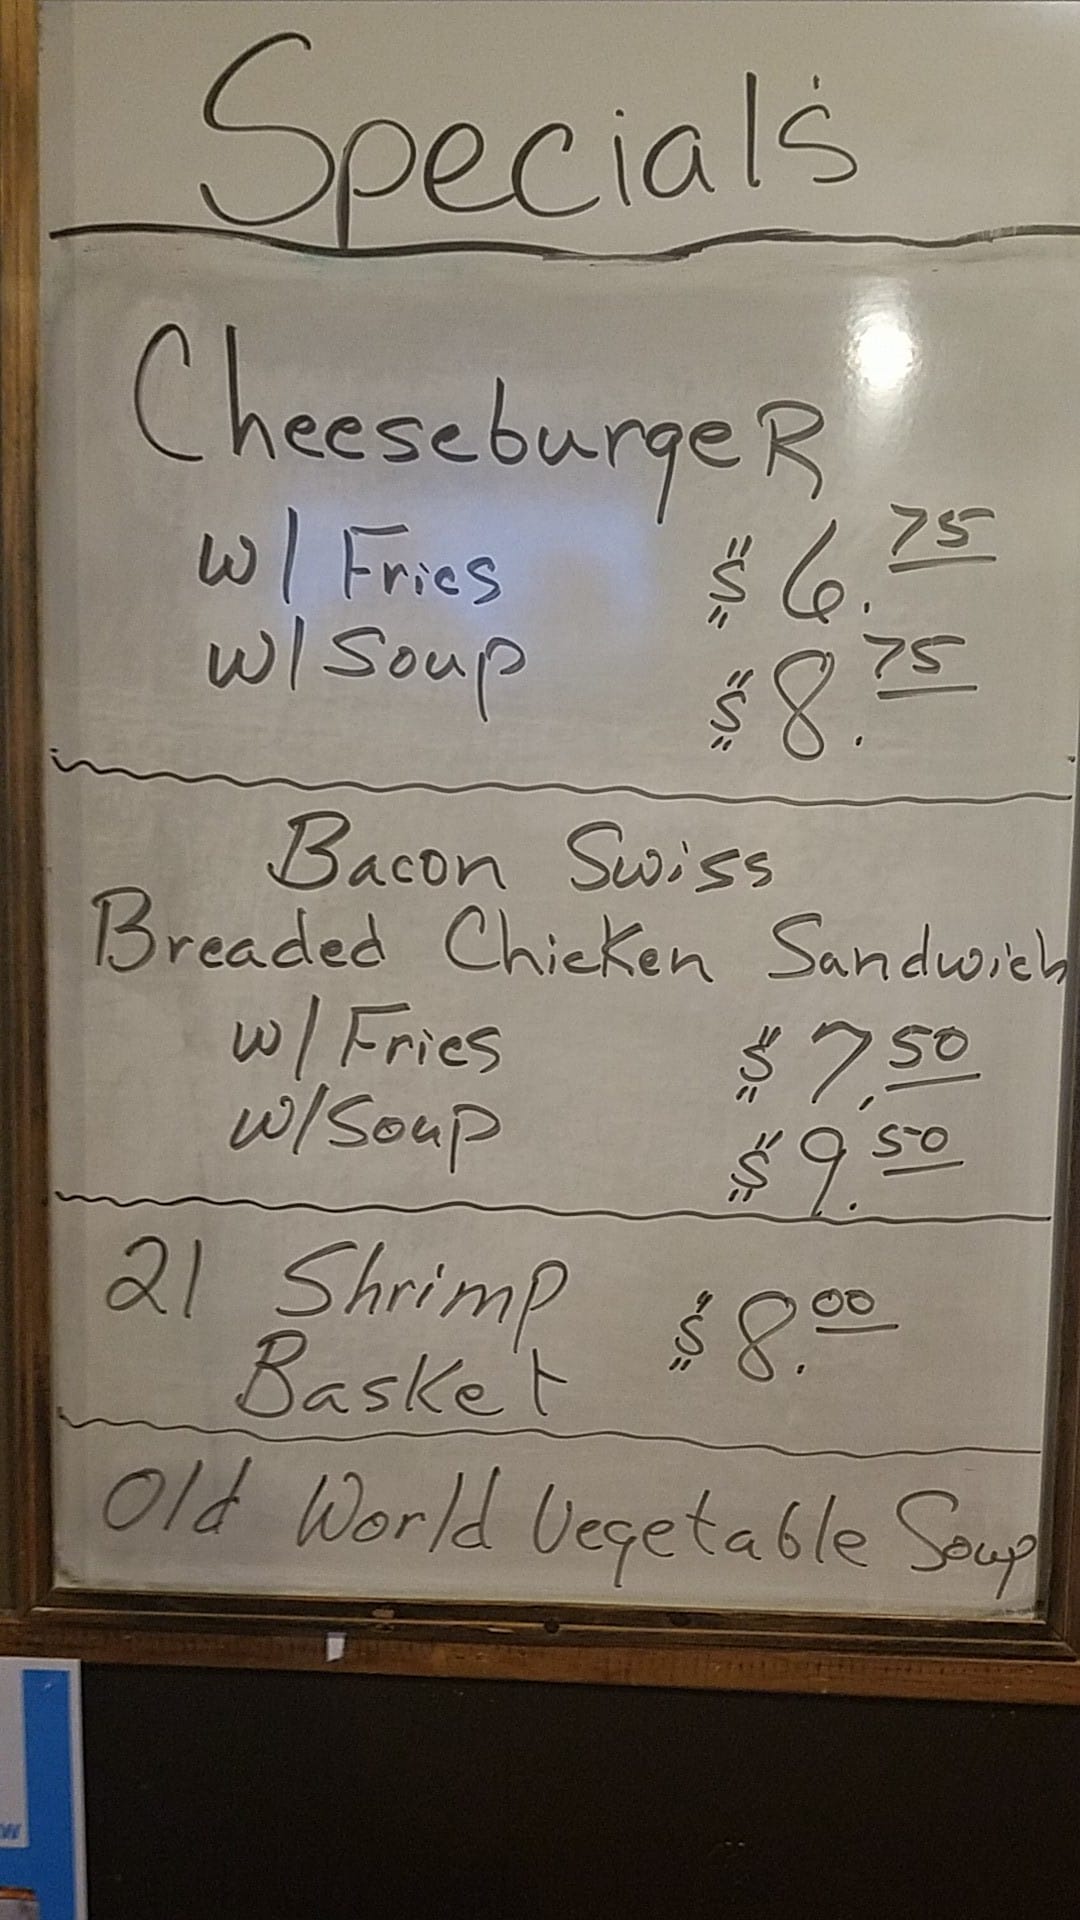 Special's
CheeseburgeR
w/ Fries $6.75
w/ Soup $8.75
Bacon Swiss
Breaded Chicken Sandwich
w/ Fries $7.50
w/ Soup $9.50
21 Shrimp
Basket $8.00
Old World Vegetable Soup